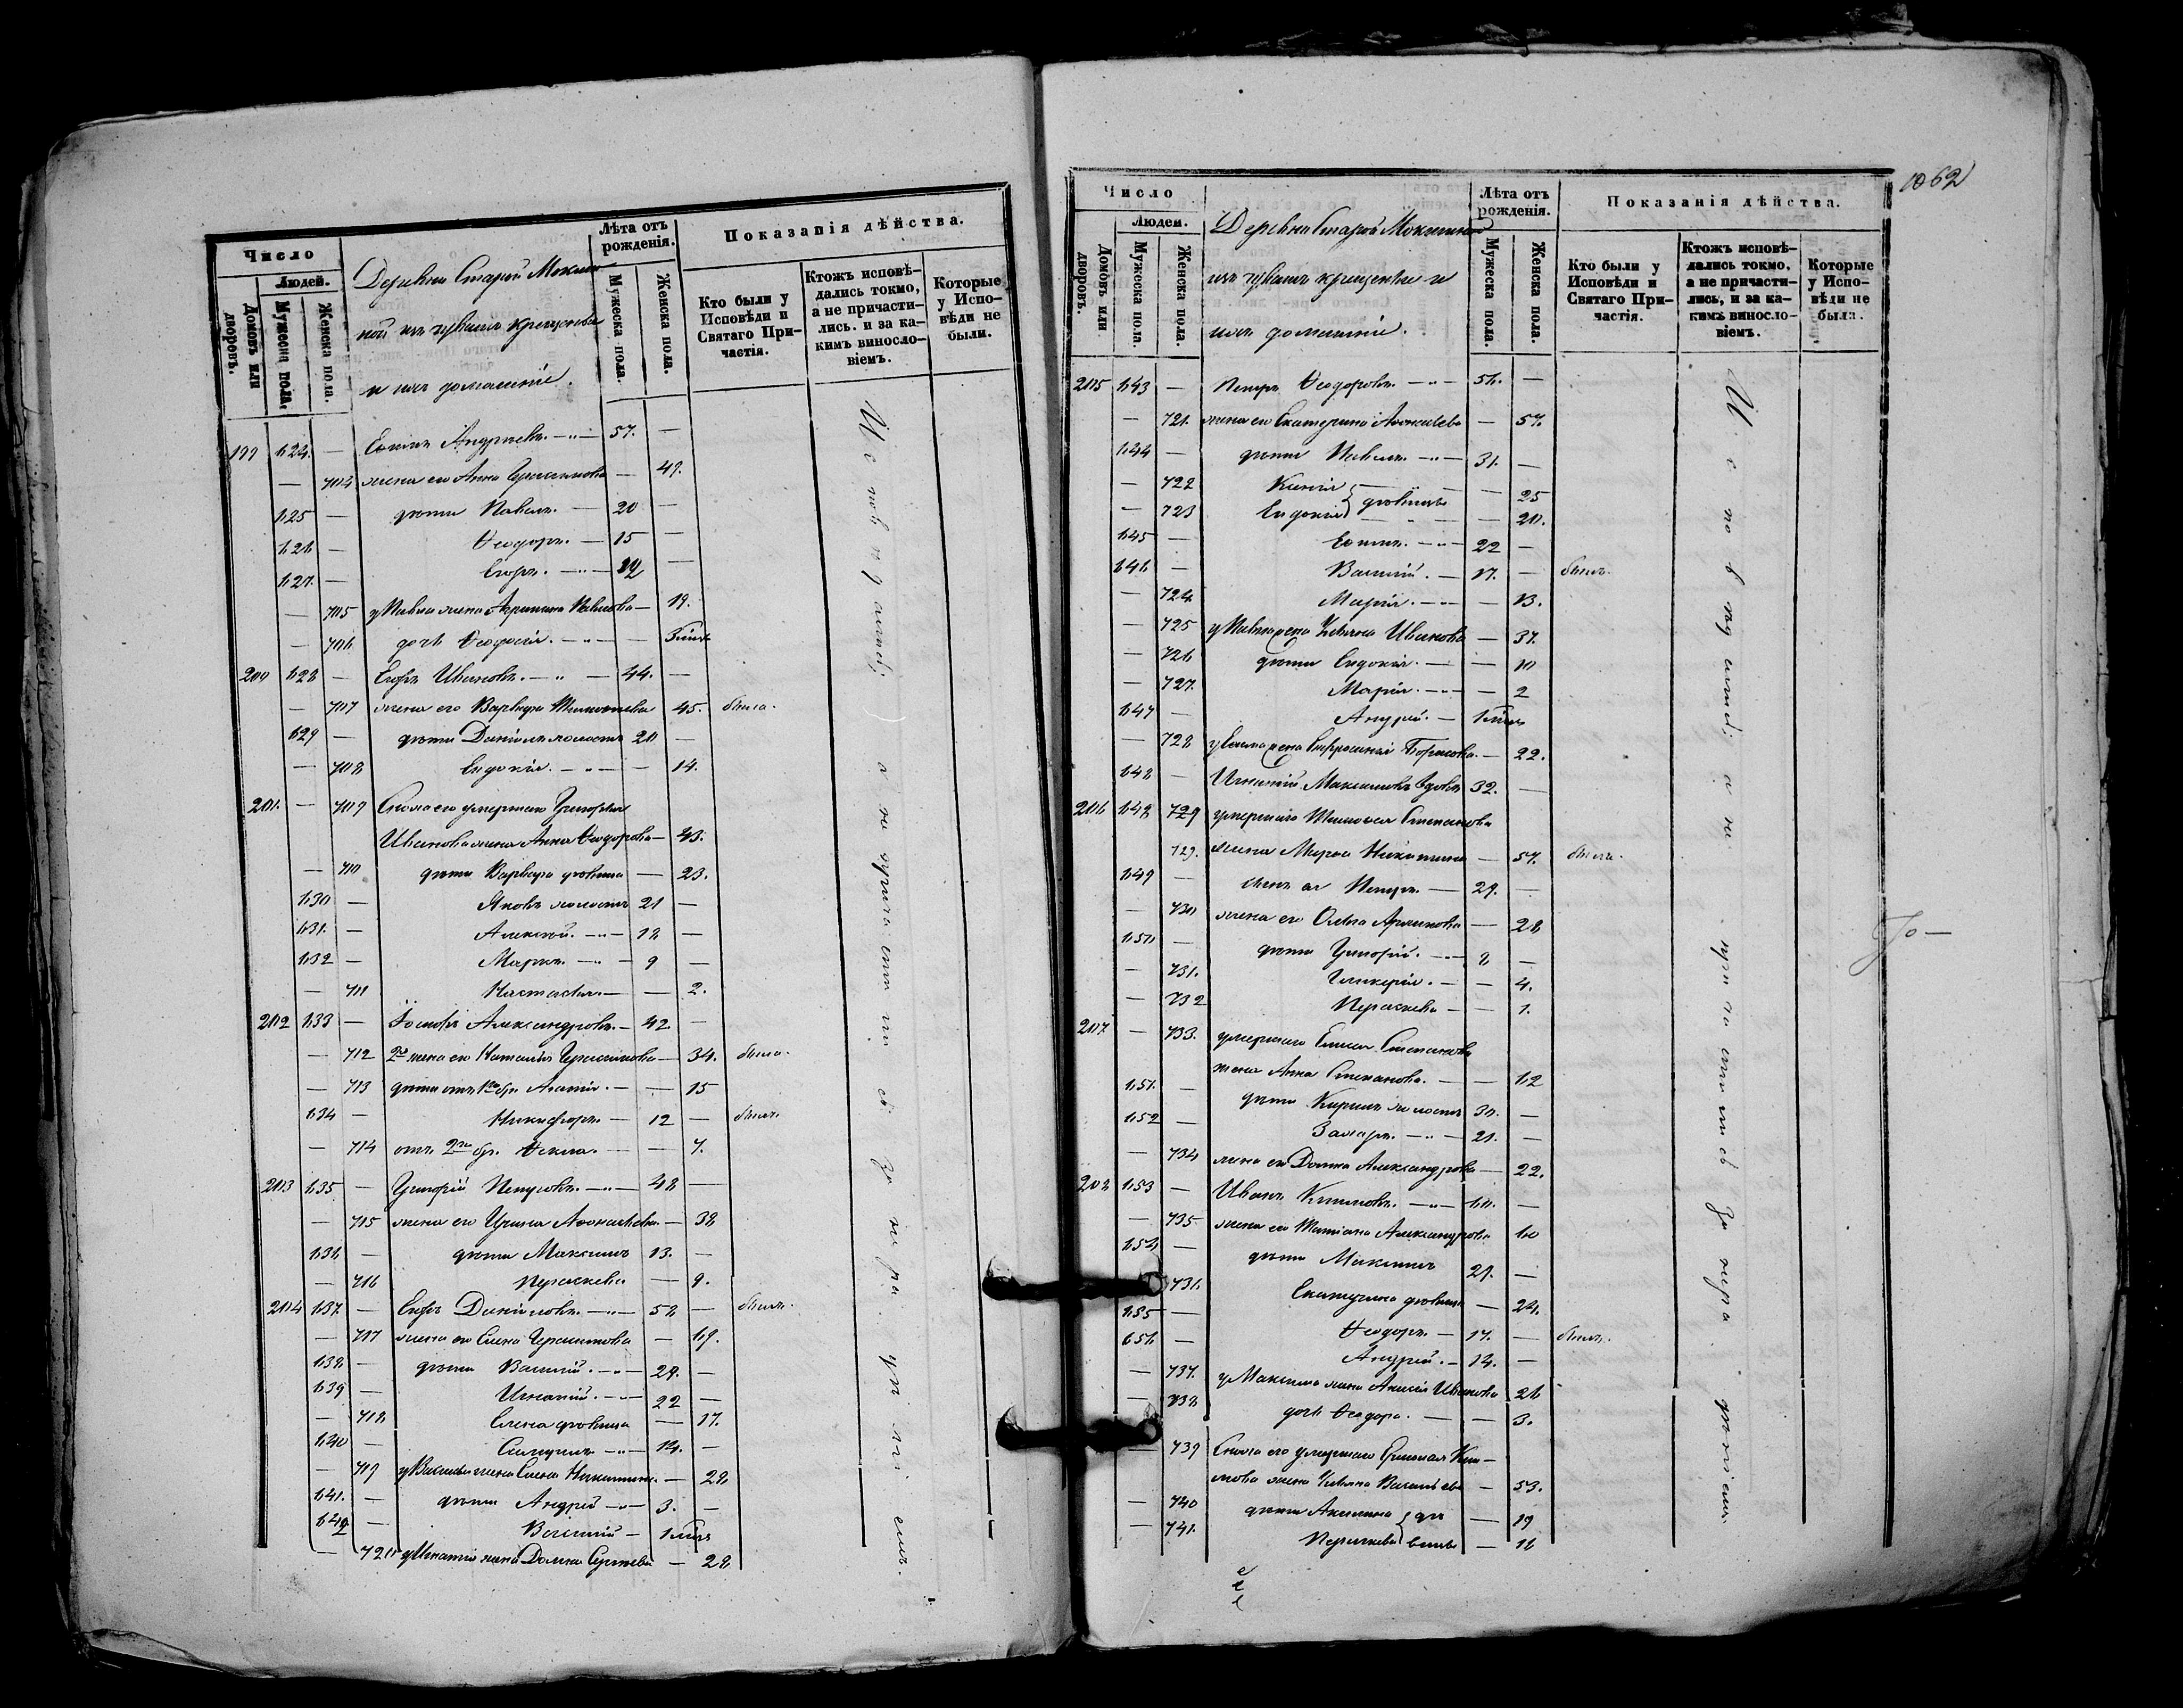 Число
Людей.
Домовъ или дворовъ.
Мужеска пола.
Женска пола.
Деревни Старой Мокши
ной изъ чувашъ крещеные
и ихъ домашніе.
Лѣта отъ рожденія.
Мужеска пола.
Женска пола.
Показанія дѣйства.
Кто были у Исповѣди и Святаго Причастія.
Ктожъ исповѣдались токмо, а не причастились, и за какимъ винословіемъ.
Которые у Исповѣди не были.
199 624. — Ефимъ Андреевъ. — 57. —
— 704 жена его Анна Герасимова — 49.
625 — дѣти Павелъ. — 20 —
626 — Ѳеодоръ. — 15 —
627. — Егоръ. — —
— 705 у Павла жена Акулина Павлова — 19.
— 706 дочь Ѳеодосія. —
200 628 — Егоръ Ивановъ. — 44. —
— 707 жена его Варвара Тимофеева 45. была.
629 — дѣти Даніилъ холостъ 20 —
— 708 Евдокія. — — 14.
201. — 709 Снохи его умершаго Григорья
Иванова жена Анна Ѳеодорова — 43.
— 710 дѣти Варвара дѣвица — 23.
630 — Яковъ холостъ 21 —
631. — Алексѣй. — 18 —
632 — Маркъ. — 9 —
— 711 Настасья. — — 2.
202 633 — Іосифъ Александровъ. — 42. —
— 712 2я жена его Наталья Герасимова — 34. была.
— 713 дѣти отъ 1го бр. Агафія. — — 15
634 — Никифоръ. — 12 — былъ.
— 714 отъ 2го бр. Ѳекла. — — 7.
203 635 — Григорій Петровъ. — 48 —
— 715 жена его Ирина Аѳонасьева — 38
636 — дѣти Максимъ 13. —
— 716 Праскева — 9.
204 637. — Егоръ Даніиловъ. — 58 — былъ.
— 717 жена его Елена Герасимова — 69.
638 — дѣти Василій. — 29. —
639 — Игнатій. — 22 —
— 718 Елена дѣвица — 17.
640 — — 14. —
— 719 у Василья жена Елена Никитина. — 28
641. — дѣти Андрей — 3. —
642 — Василій —
— 720 у Игнатія жена Домна Сергѣева — 28
Исповѣдались, а не причастились за нерадѣніемъ.
1062
Число
Людей.
Домовъ или дворовъ.
Мужеска пола.
Женска пола.
Деревни Старой Мокшиной
изъ чувашъ крещеные и
ихъ домашніе.
Лѣта отъ рожденія.
Мужеска пола.
Женска пола.
Показанія дѣйства.
Кто были у Исповѣди и Святаго Причастія.
Ктожъ исповѣдались токмо, а не причастились, и за какимъ винословіемъ.
Которые у Исповѣди не были.
205 643 — Петръ Ѳеодоровъ. — 56. —
— 721. жена его Екатерина Аѳонасьева — 57.
644 — дѣти Павелъ. — 31. —
— 722 Ксенія — 25
— 723 Евдокія } дѣвицы — 20.
645 — Ефимъ. — 22 —
646. — Василій. — 17. — былъ.
— 724 Марія. — — 13.
— 725 у Павла жена Иванова — 37.
— 726 дѣти Евдокія. — — 10
— 727. Марія. — — 2
647 — Андрей. —
— 728 у Ефима жена Ефросинья Борисова. — 22.
648 — Игнатій Максимовъ вдовъ 32. —
206 648 729 умершаго Тимофея Степанова
729. жена Марѳа Никитина — 57. была.
649 — сынъ ея Петръ. — 29. —
— 730 жена его Ольга — 28
650 — дѣти Григорій. — 8 —
— 731. Гликерія. — — 4.
— 732 Праскева — — 1.
207 — 733. умершаго Степанова
жена Анна Степанова. — — 62
651. — дѣти Кирилъ холостъ 30. —
652 — Захаръ. — 21. —
— 734 жена его Домна Александрова — 22.
208 653 — Иванъ Климовъ. — 60. —
— 735 жена его Татіана Александрова 60
654 — дѣти Максимъ 29. —
736. Екатерина дѣвица — 24.
655 — Ѳеодоръ. — 17. — былъ.
656 — Андрей. — 14. —
— 737. у Максима жена Анисія Иванова 26
— 738 дочь Ѳеодора. — — 3.
— 739 Снохи его умершаго Кли-
мова жена Васильева — 53.
— 740 дѣти Акилина } дѣ — 19
— 741. Праскева } вицы — 16
Исповѣдались, а не причастились за нерадѣніемъ.